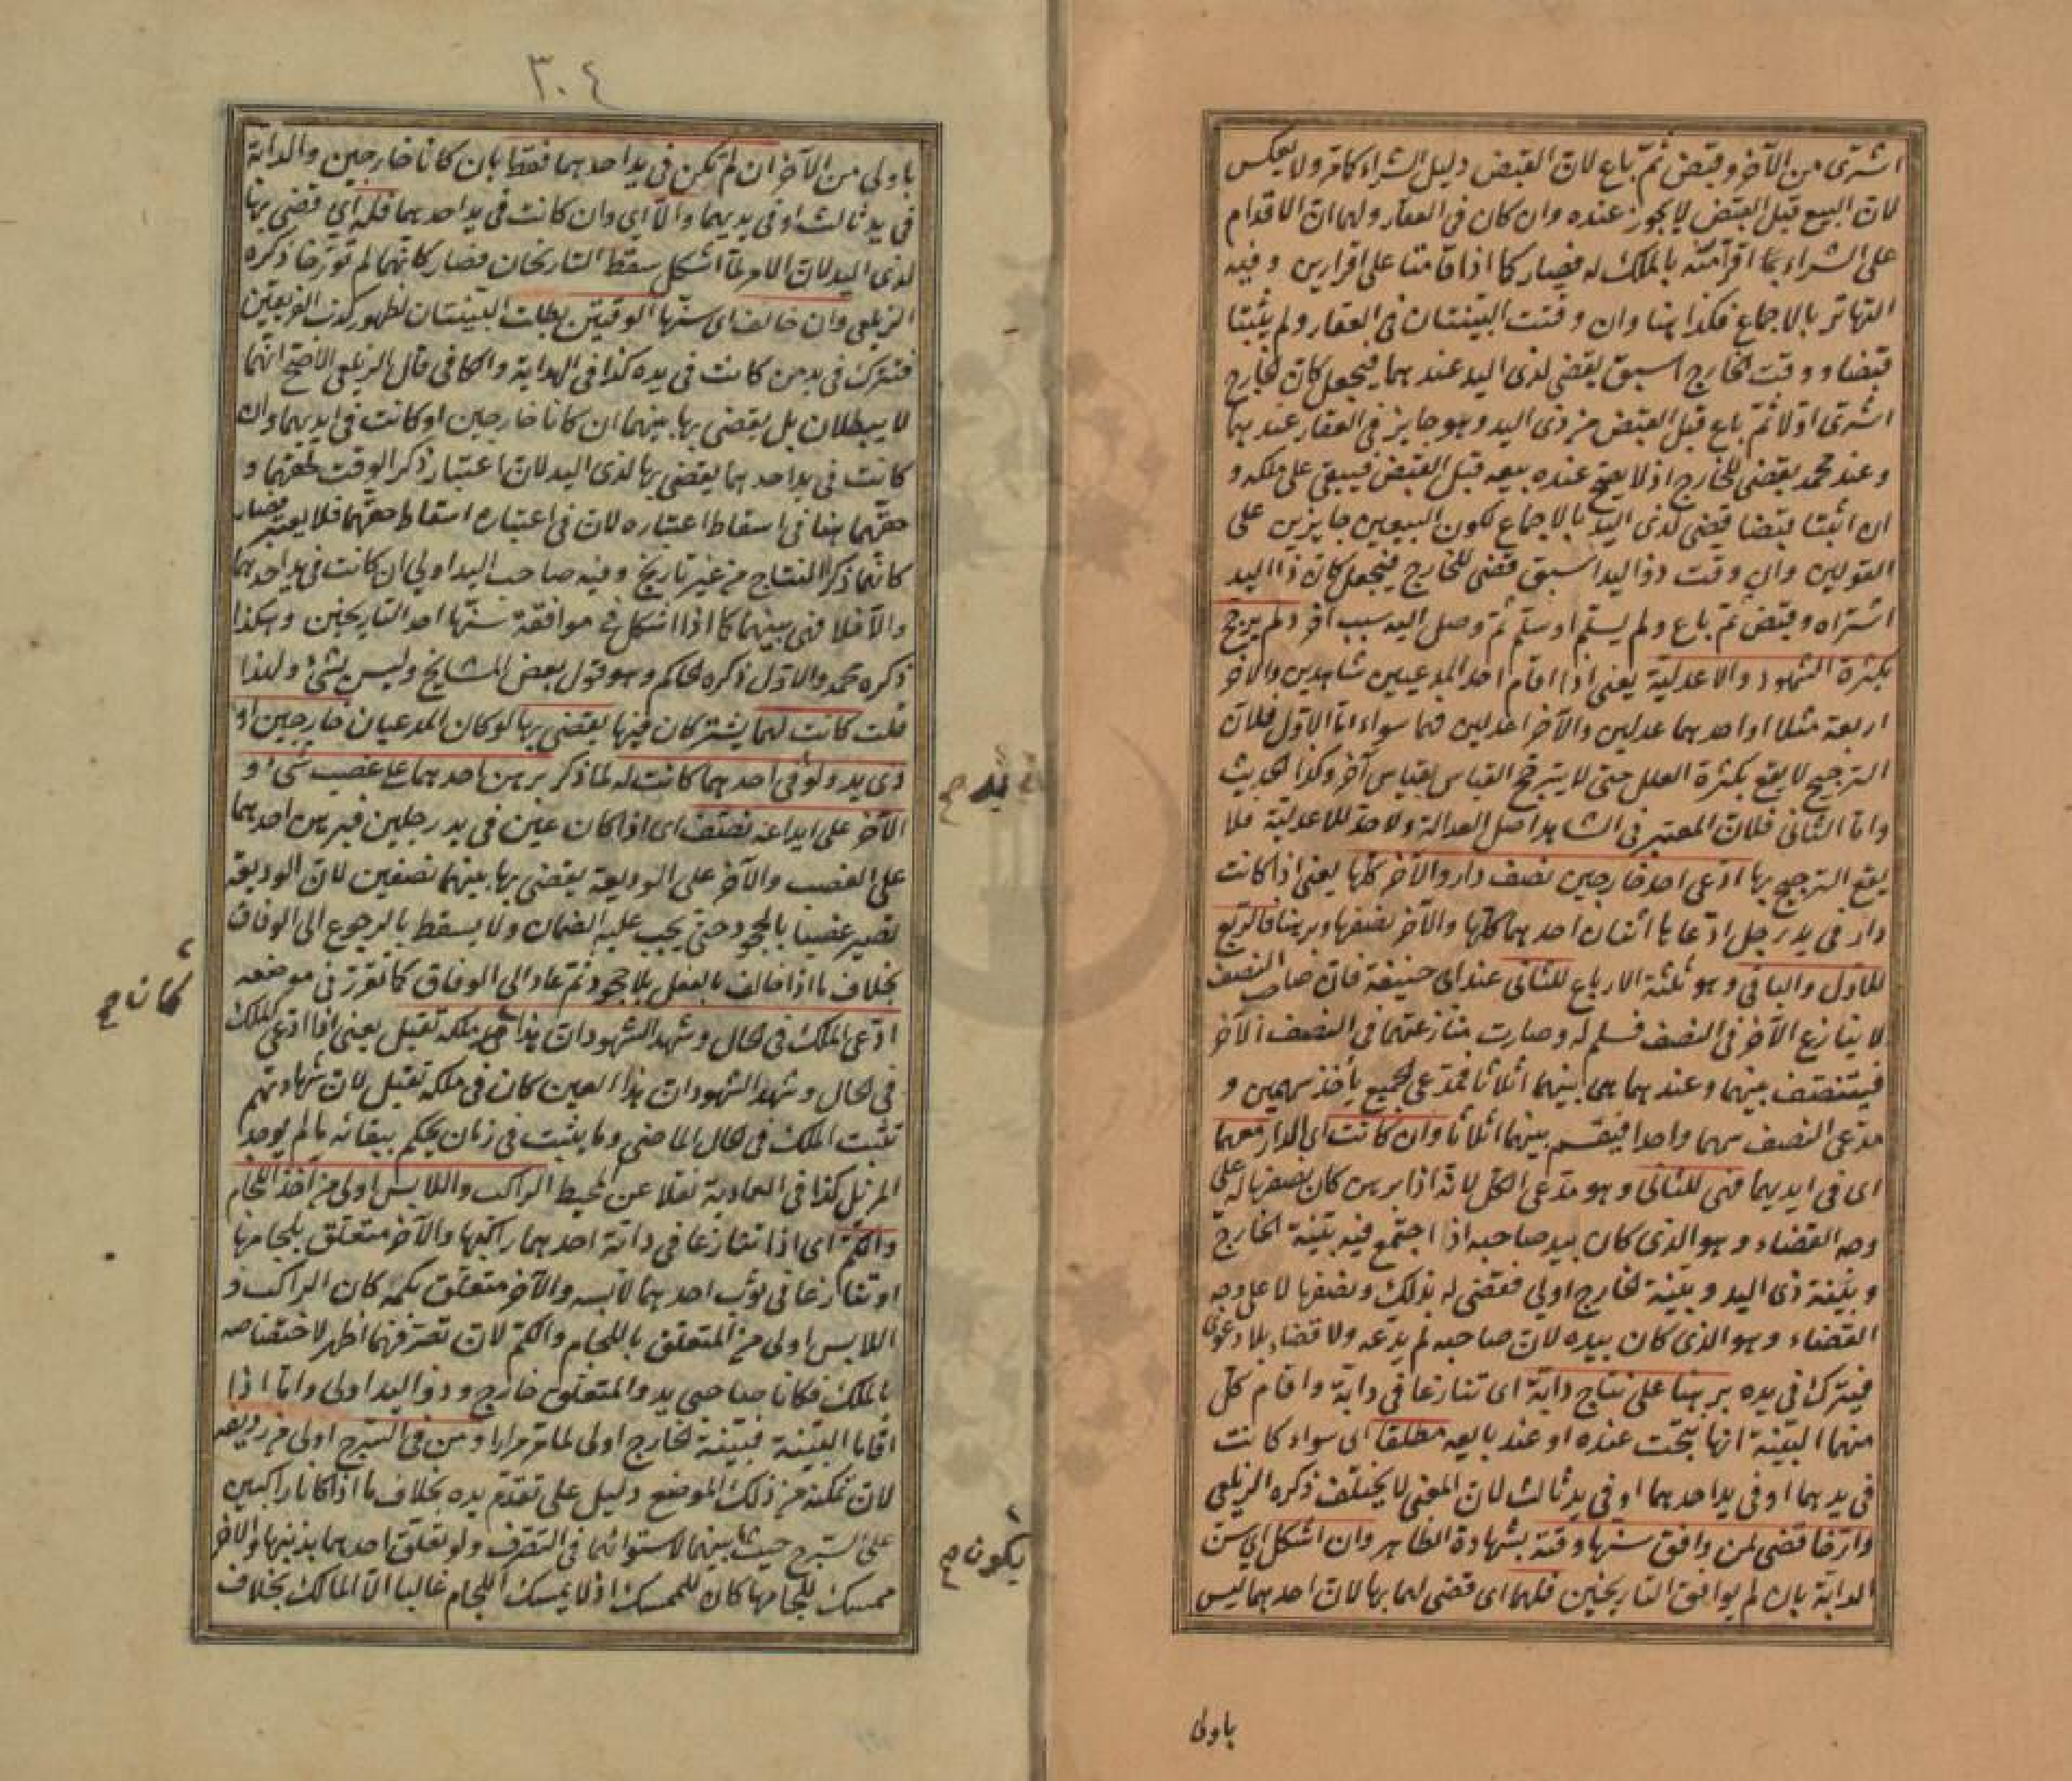 اشترى من الآخر وقبض ثم باع لان القبض دليل الشراء كما مر ولا يعكس
لان البيع قبل القبض لا يجوز عنده وان كان في العقار ولهما ان الاقدام
على الشراء اقرار منه بالملك له فصار كما اذا قامتا على اقرارين وفيه
التهاتر بالاجماع فكذا هنا وان وقتت البينتان في العقار ولم يثبتا
قبضا ووقت الخارج اسبق يقضى لذى اليد عندهما فيجعل كان الخارج
اشترى اولا ثم باع قبل القبض من ذى اليد وهو جايز في العقار عندهما
وعند محمد يقضى للخارج اذ لا يصح عنده بيعه قبل القبض فيبقى على ملكه و
ان اثبتا قبضا قضى لذى اليد بالاجماع لكون البيعين جايزين على
القولين وان وقت ذو اليد اسبق قضى للخارج فيجعل كان ذا اليد
اشتراه وقبض ثم باع ولم يسلم او سلم ثم وصل اليه بسبب آخر ولم يرجح
بكثرة الشهود والاعدلية يعنى اذا اقام احد المدعيين شاهدين والآخر
اربعة مثلا او احدهما عدلين والآخر اعدلين فهما سواء اما الاول فلان
الترجيح لا يقع بكثرة العلل حتى لا يترجح القياس بقياس آخر وكذا الحديث
واما الثانى فلان المعتبر في الشاهد اصل العدالة ولا حد للاعدلية فلا
يقع الترجيح بها ادعى احد خارجين نصف دار والآخر كلها يعنى اذا كانت
دار في يد رجل ادعاها اثنان احدهما كلها والآخر نصفها وبرهنا فالربع
للاول والباقى وهو ثلثة الارباع للثانى عند ابى حنيفة فان صاحب النصف
لا ينازع الآخر في النصف فسلم له وصارت منازعتهما في النصف الآخر
فيتنصف بينهما وعندهما هى بينهما اثلاثا فمدعى الجميع يأخذ سهمين و
مدعى النصف سهما واحدا فيقسم بينهما اثلاثا وان كانت اى الدار معهما
اى في ايديهما فهى للثانى وهو مدعى الكل لانه اذا برهن كان نصفها له على
وجه القضاء وهو الذى كان بيد صاحبه اذا اجتمع فيه بينة الخارج
وبينة ذى اليد وبينة الخارج اولى فقضى له بذلك ونصفها لا على وجه
القضاء وهو الذى كان بيده لان صاحبه لم يدعه ولا قضاء بلا دعوى
فيترك في يده برهنا على نتاج دابة اى تنازعا في دابة واقام كل
منهما البينة انها نتجت عنده او عند بايعه مطلقا اى سواء كانت
في يدهما او في يد احدهما او في يد ثالث لان المعنى لا يختلف ذكره الزيلعى
وارخا قضى لمن وافق سنها وقته بشهادة الظاهر وان اشكل اى سن
الدابة بان لم يوافق التاريخين فلهما اى قضى لهما بها لان احدهما ليس
باولى
٣٠٤
باولى من الآخر ان لم تكن في يد احدهما فقط بان كانا خارجين والدابة
في يد ثالث او في يديهما والا اى وان كانت في يد احدهما فله اى قضى بها
لذى اليد لان الامر لما اشكل سقط التاريخان فصار كانهما لم تورخا ذكره
الزيلعى وان خالف اى سنها الوقتين بطلت البينتان لظهور كذب الفريقين
فتترك في يد من كانت في يده كذا في الهداية والكافى قال الزيلعى الاصح انهما
لا يبطلان بل يقضى بها بينهما ان كانا خارجين او كانت في ايديهما وان
كانت في يد احدهما يقضى بها لذى اليد لان اعتبار ذكر الوقت لحقهما و
حقهما هنا في اسقاط اعتباره لان في اعتباره اسقاط حقهما فلا يعتبر فصار
كانهما ذكرا النتاج من غير تاريخ وفيه صاحب اليد اولى ان كانت في يد احدهما
والا فلا فهى بينهما كما اذا اشكل في موافقة سنها احد التاريخين وهكذا
ذكره محمد والاول ذكره الحاكم وهو قول بعض المشايخ وليس بشئ ولهذا
قلت كانت لهما يشتركان فيها يقضى بها لو كان المدعيان خارجين او
ذى يد ولو في احدهما كانت له لما ذكر برهن احدهما على غصب شئ و
الآخر على ايداعه نصف اى اذا كان عين في يد رجلين فبرهن احدهما
على الغصب والآخر على الوديعة يقضى بها بينهما نصفين لان الوديعة
تصير غصبا بالجحود حتى يجب عليه الضمان ولا يسقط بالرجوع الى الوفاق
بخلاف ما اذا خالف بالفعل بلا جحود ثم عاد الى الوفاق كما تقرر في موضعه
ادعى الملك في الحال وشهد الشهود ان هذا في ملكه تقبل يعنى اذا ادعى الملك
في الحال وشهد الشهود ان هذا العين كان في ملكه تقبل لان شهادتهم
تثبت الملك في الحال الماضى وما يثبت في زمان يحكم ببقائه ما لم يوجد
المزيل كذا في العمادية نقلا عن المحيط الراكب واللابس اولى من آخذ اللجام
والكم اى اذا تنازعا في دابة احدهما راكبها والآخر متعلق بلجامها
او تنازعا في ثوب احدهما لابسه والآخر متعلق بكمه كان الراكب و
اللابس اولى من المتعلق باللجام والكم لان تصرفهما اظهر لاختصاصه
بالملك فكانا صاحبى يد والمتعلق خارج وذو اليد اولى واما اذا
اقاما البينة فبينة الخارج اولى لما مر مرارا ومن في السرج اولى من رديفه
لان تمكنه من ذلك الموضع دليل على تقدم يده بخلاف ما اذا كانا راكبين
على السرج حيث بينهما لاستوائهما في التصرف ولو تعلق احدهما بذنبها والآخر
ممسك للجامها كان للممسك اذ لا يمسك اللجام غالبا الا المالك بخلاف
يد صح
كان صح
يكون صح